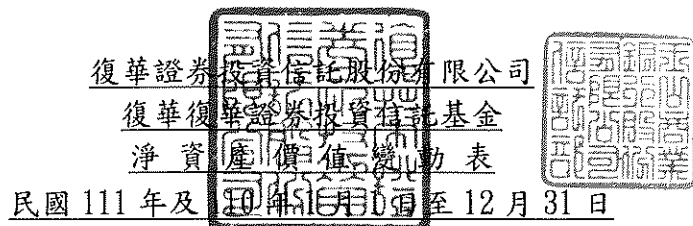 復華證券投資信託股份有限公司
復華復華證券投資信託基金
淨資產價值變動表
民國 111 年及 110 年 1 月 1 日至 12 月 31 日